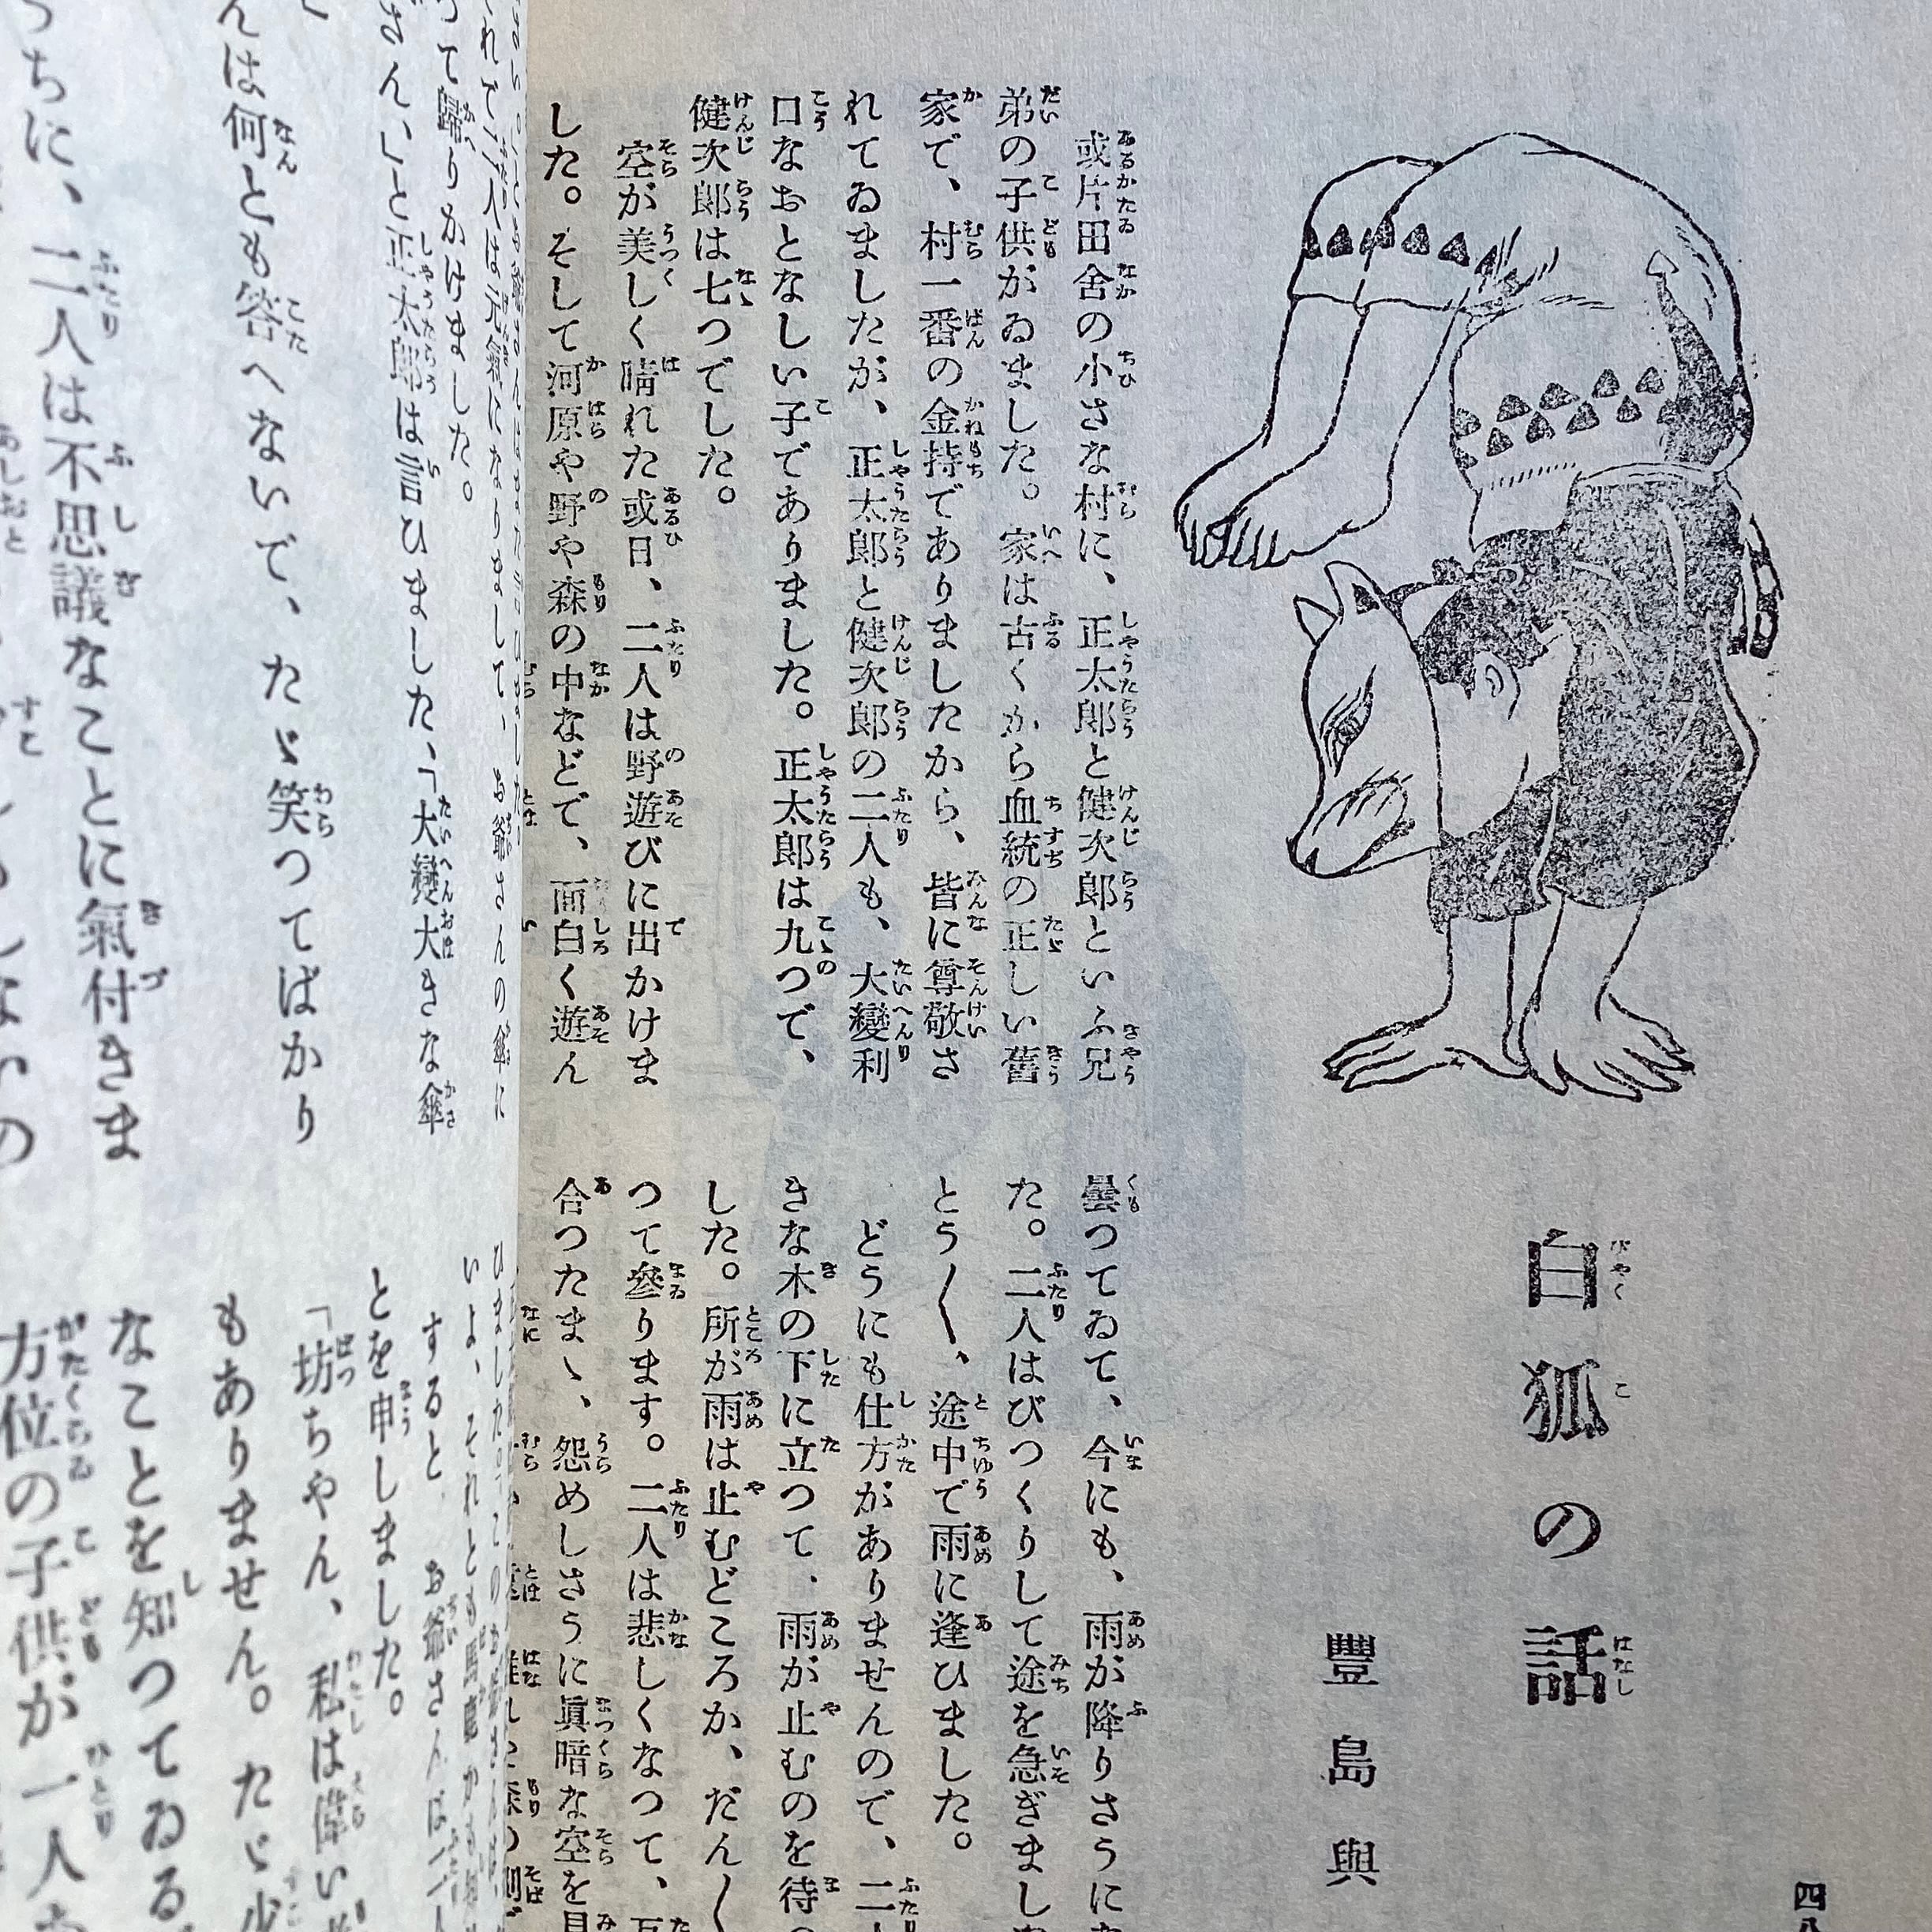 白狐の話
豐島與
四八
或片田舍の小さな村に、正太郎と健次郎といふ兄
弟の子供がゐました。家は古くから血統の正しい舊
家で、村一番の金持でありましたから、皆に尊敬さ
れてゐましたが、正太郎と健次郎の二人も、大變利
口なおとなしい子でありました。正太郎は九つで、
健次郎は七つでした。
空が美しく晴れた或日、二人は野遊びに出かけま
した。そして河原や野や森の中などで、面白く遊ん
曇つてゐて、今にも、雨が降りさうに
た。二人はびつくりして途を急ぎまし
とう〳〵、途中で雨に逢ひました。
どうにも仕方がありませんので、二
きな木の下に立つて、雨が止むのを待
した。所が雨は止むどころか、だん〳〵
つて參ります。二人は悲しくなつて、
合つたまゝ、怨めしさうに眞暗な空を
れて二人は元氣になりまして、お爺さんの傘に
つて歸りかけました。
さん、」と正太郎は言ひました、「大變大きな傘
んは何とも答へないで、たゞ笑つてばかり
うちに、二人は不思議なことに氣付きま
いよ、それとも馬鹿か
すると お爺さんは
とを申しました。
「坊ちやん、私は偉い
もありません。たゞ少
なことを知つてゐる
方位の子供が一人